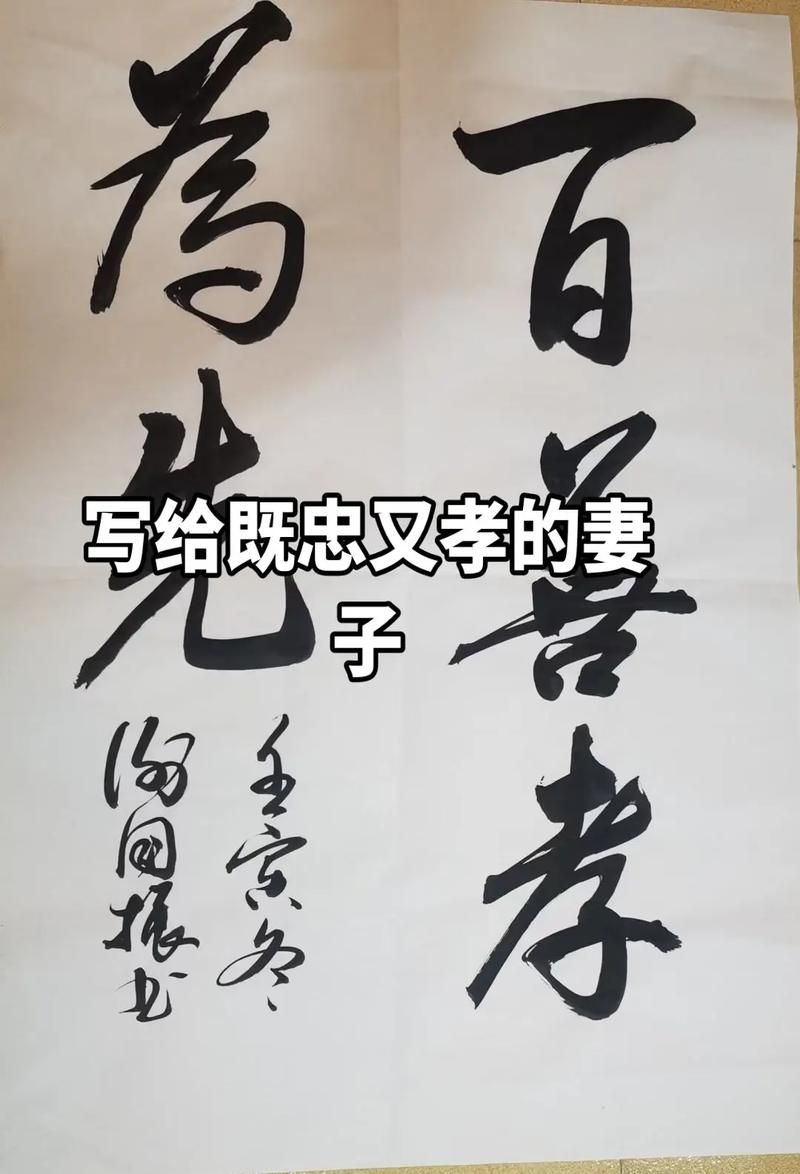 百善孝
為先
壬寅冬
谢国振书
写给既忠又孝的妻
子